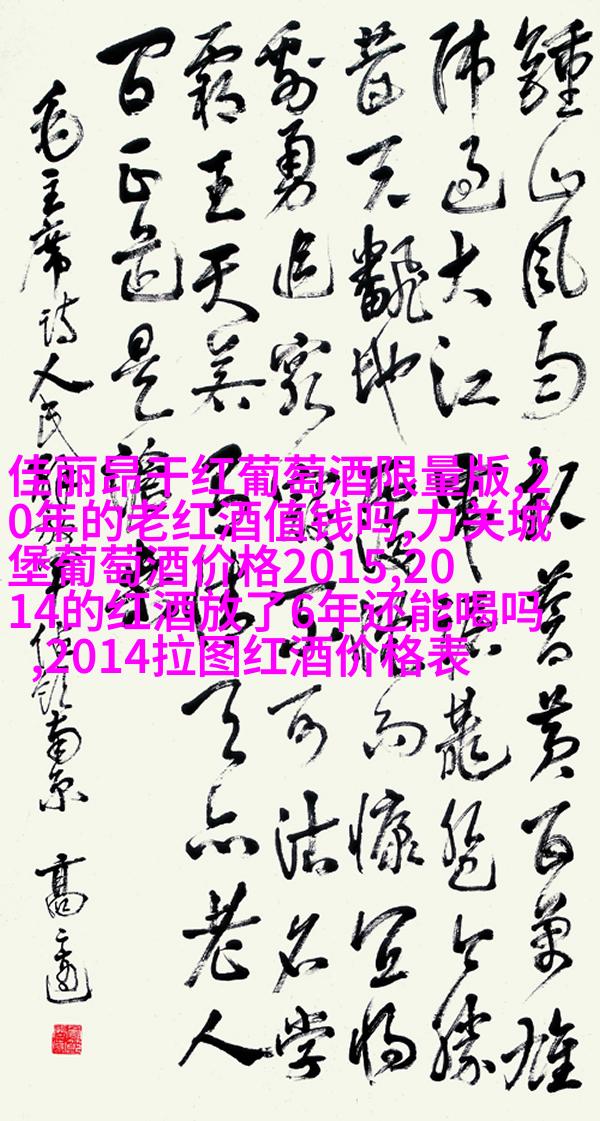 鍾山风雨起苍黄百万雄
师过大江虎踞龙盘今胜
昔天翻地覆慨而慷宜将
剩勇追穷寇不可沽名学
霸王天若有情天亦老人
间正道是沧桑
毛主席诗人民解放军占领南京 高
佳丽昂干红葡萄酒限量版,2
0年的老红酒值钱吗,力关城
堡葡萄酒价格2015,20
14的红酒放了6年还能喝吗
,2014拉图红酒价格表